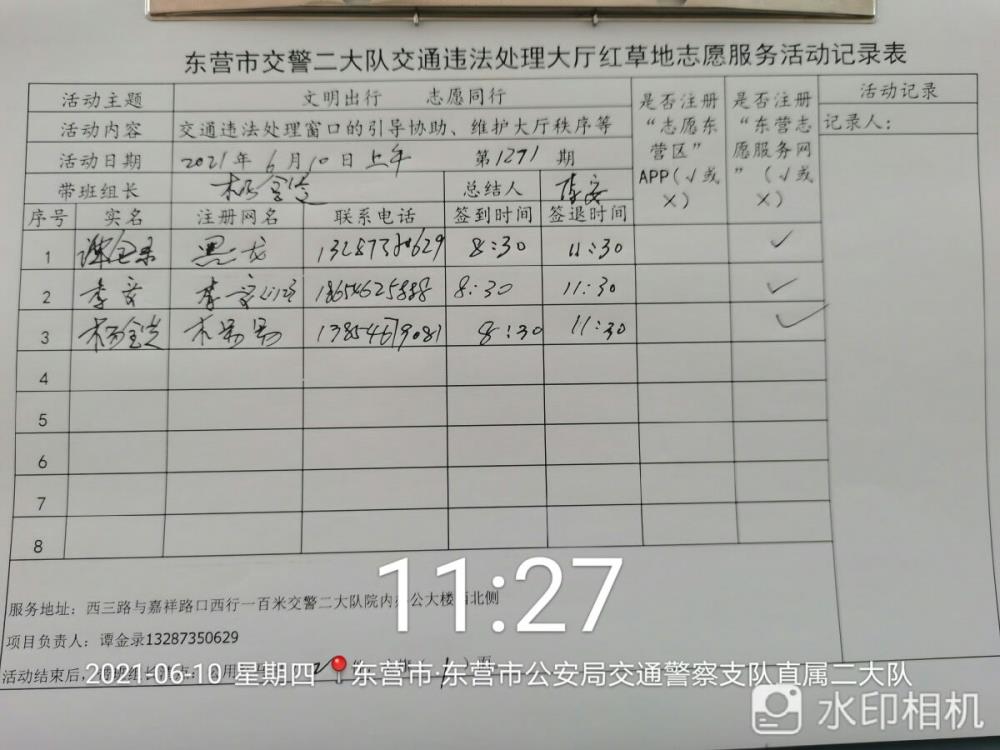 东营市交警二大队交通违法处理大厅红草地志愿服务活动记录表
活动主题 文明出行 志愿同行 是否注册“志愿东营区”APP(√或×) 是否注册“东营志愿服务网”(√或×) 活动记录
活动内容 交通违法处理窗口的引导协助、维护大厅秩序等 记录人:
活动日期 2021年6月10日上午 第1271期
带班组长 总结人
序号 实名 注册网名 联系电话 签到时间 签退时间
1 谭金录 黑龙 13287350629 8:30 11:30 ✓
2 18654625888 8:30 11:30 ✓
3 13854679081 8:30 11:30 ✓
4
5
6
7
8
服务地址: 西三路与嘉祥路口西行一百米交警二大队院内办公大楼西北侧
项目负责人: 谭金录13287350629
活动结束后,
11:27
2021-06-10 星期四 东营市·东营市公安局交通警察支队直属二大队
水印相机